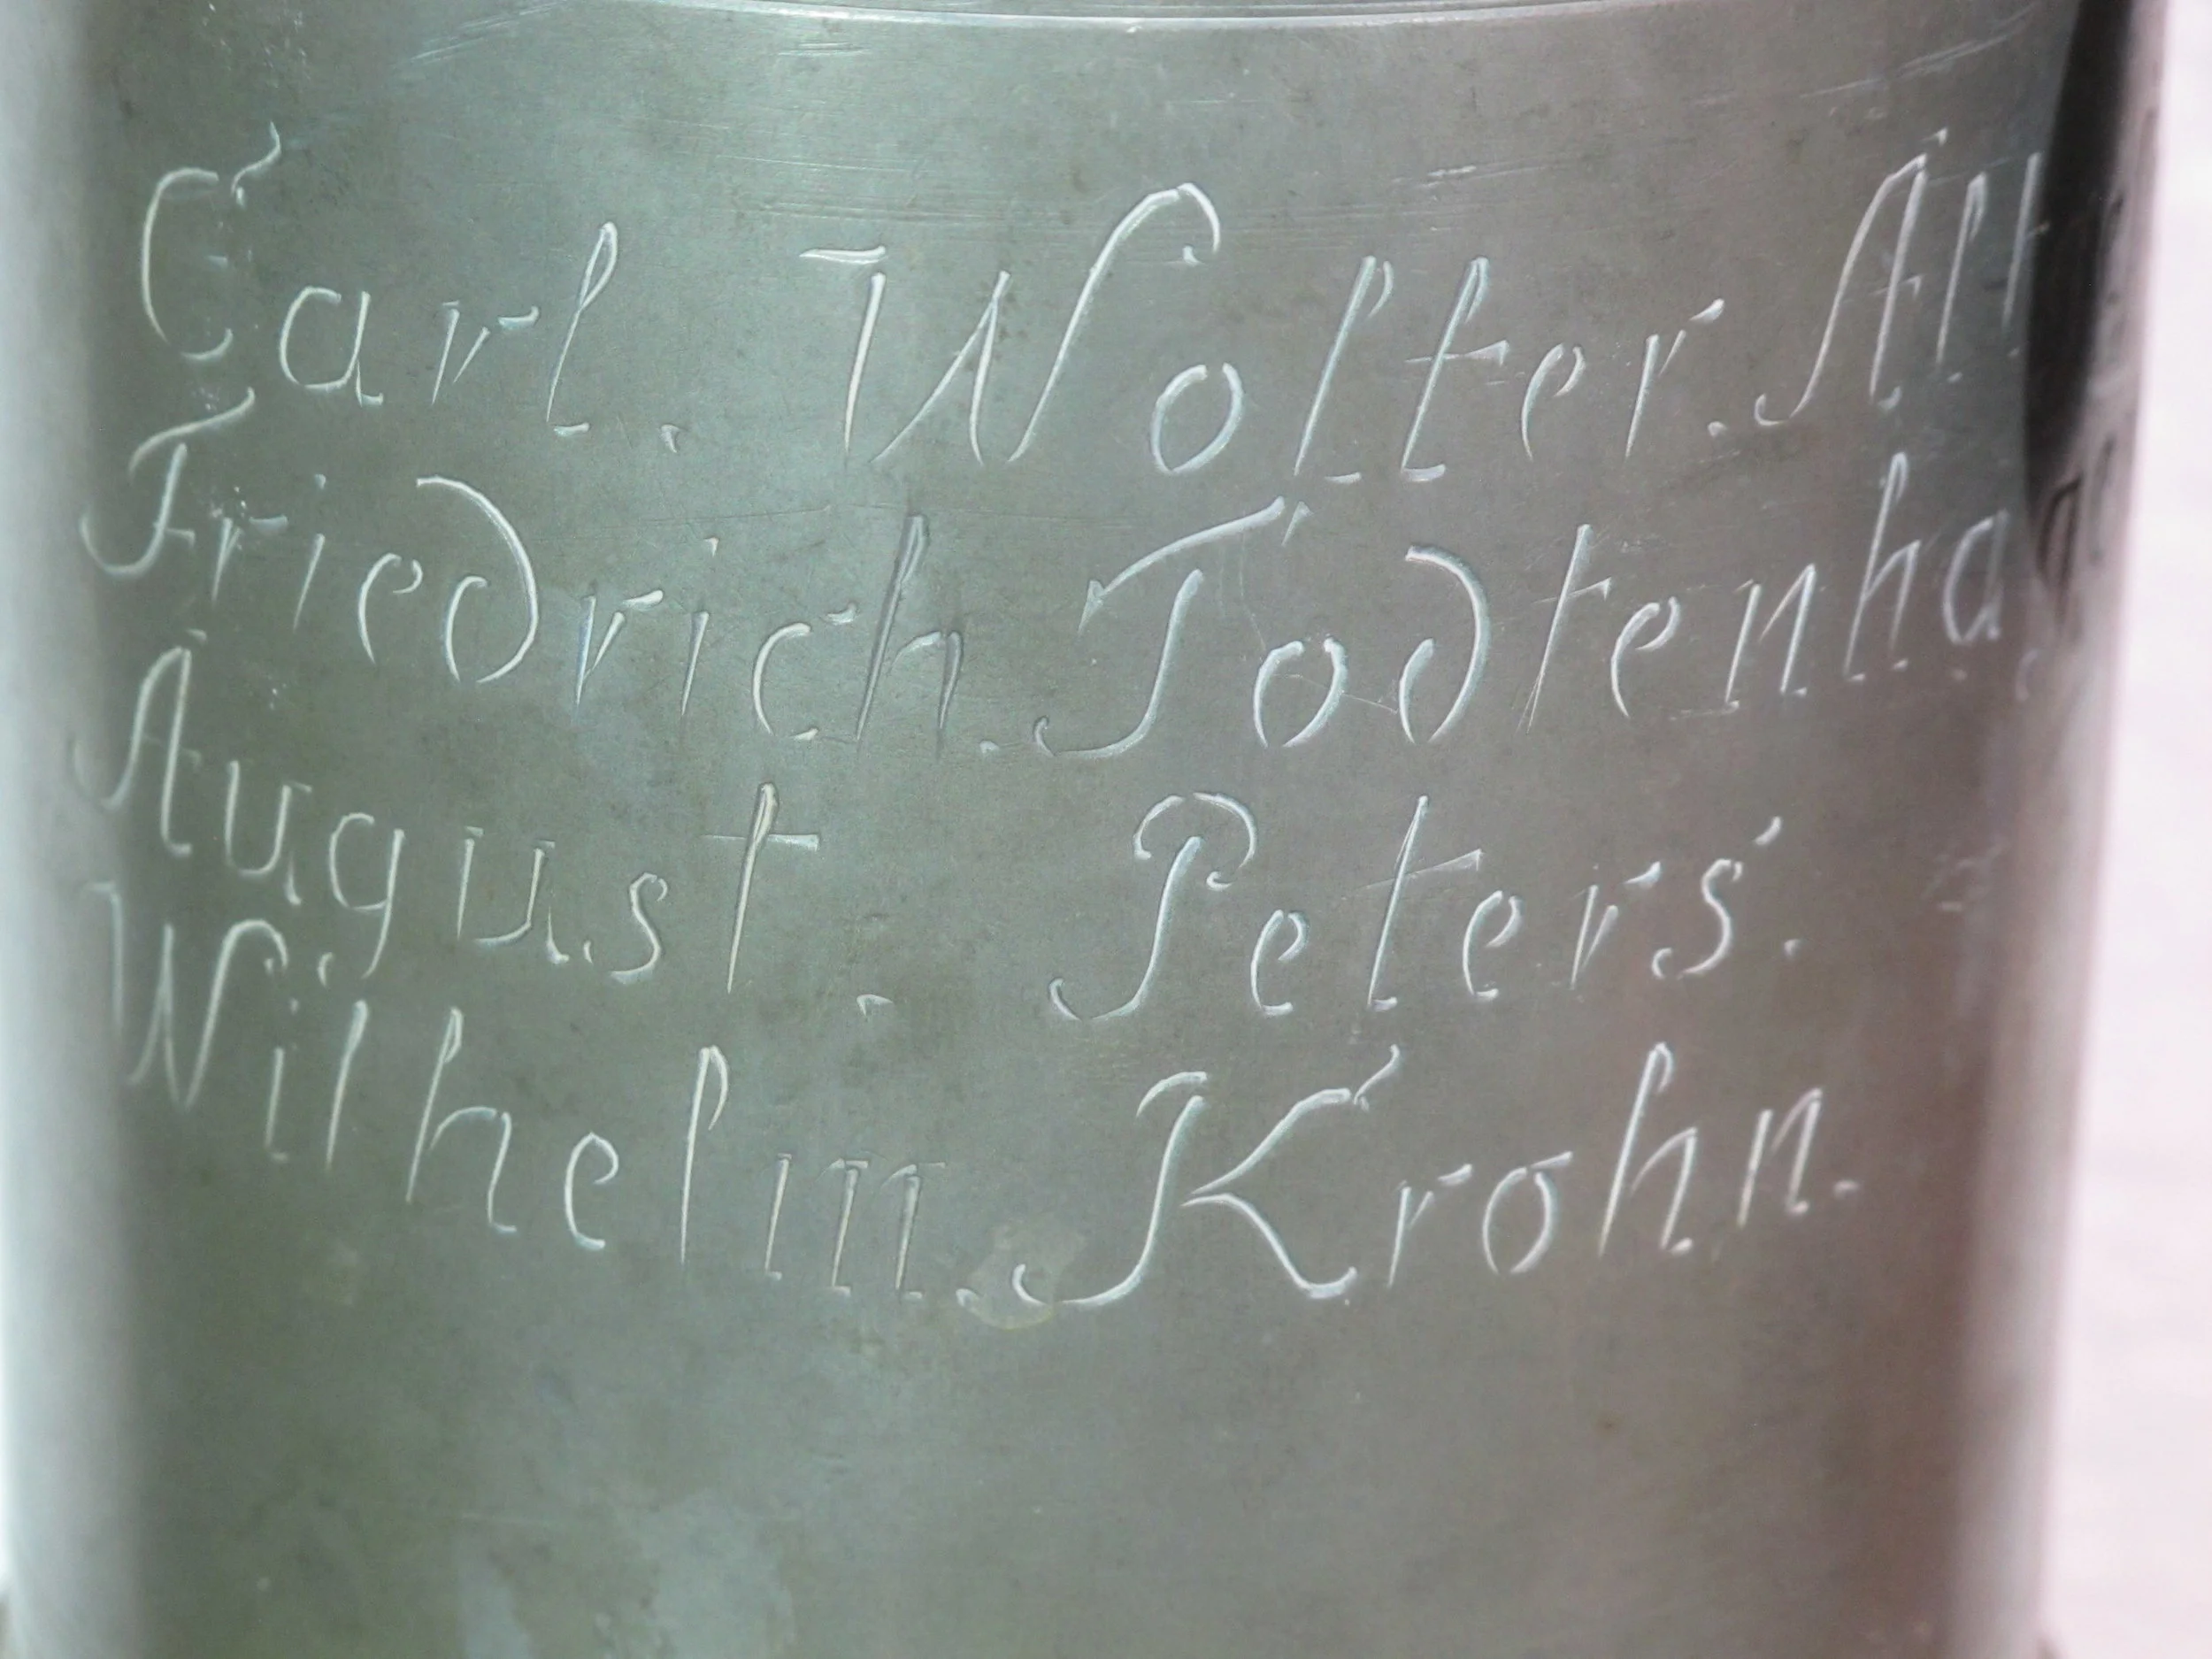 Carl. Wolter.
Friedrich. Todtenhag
August. Peters.
Wilhelm. Krohn.